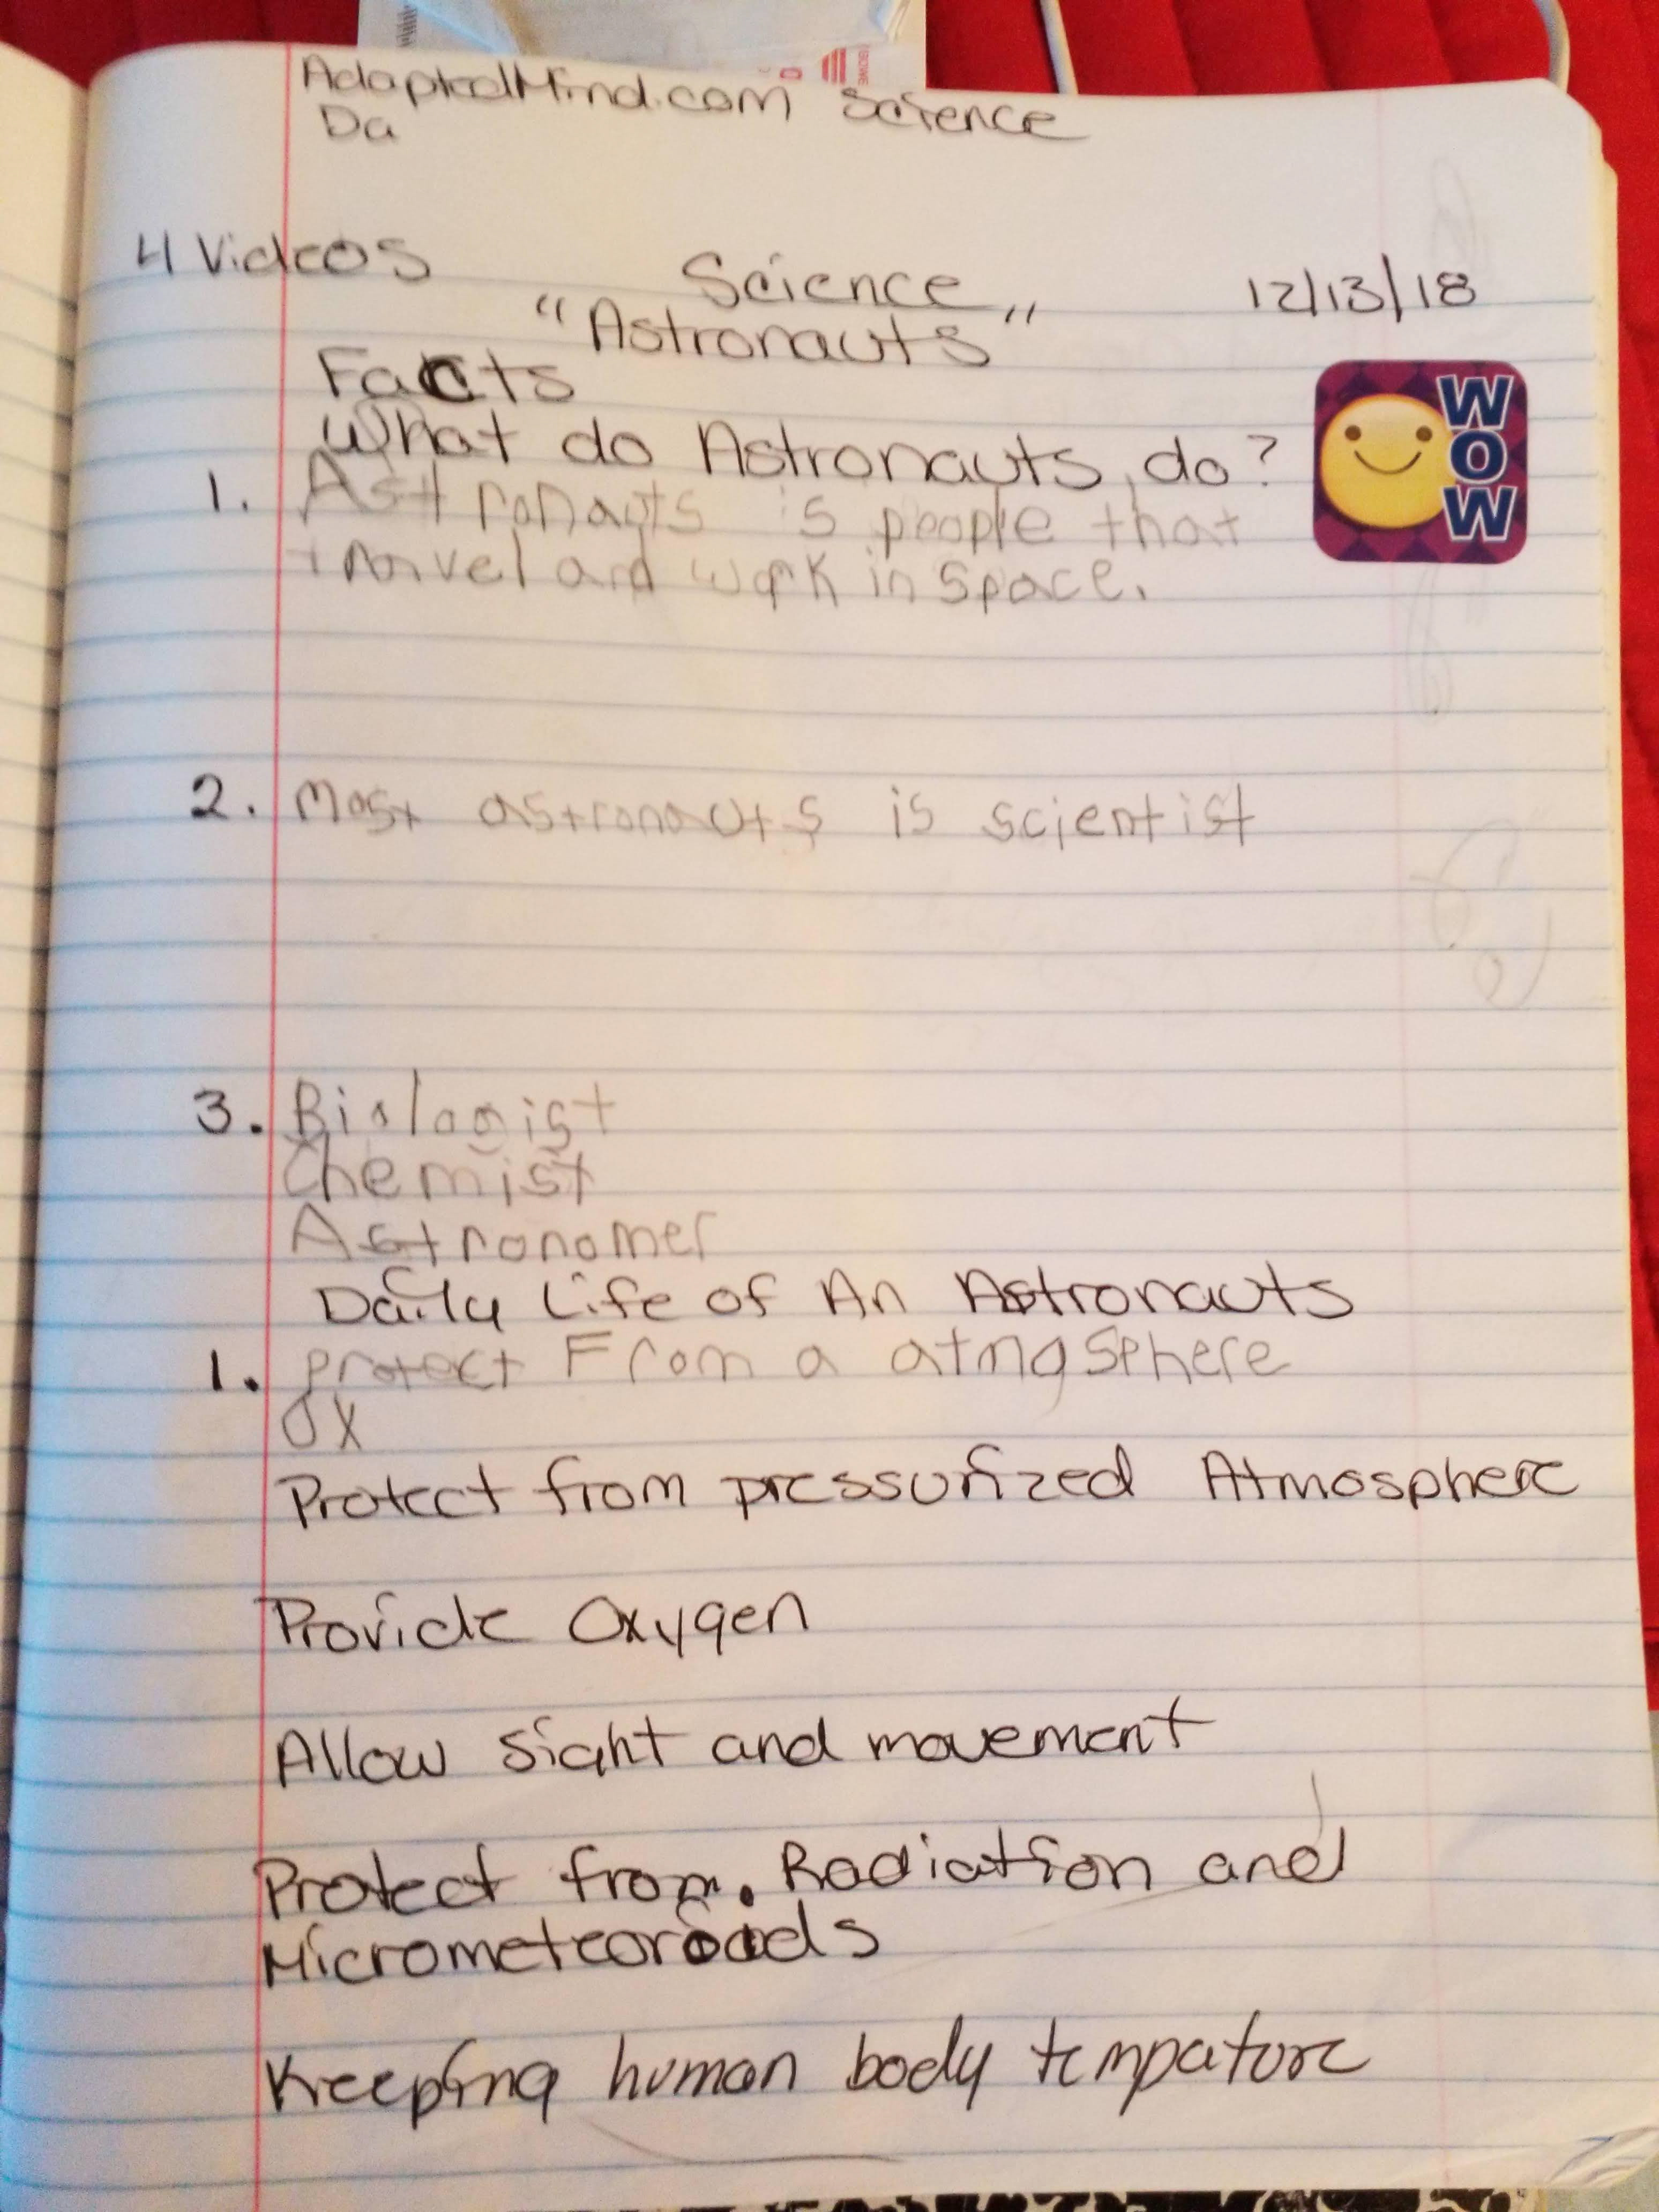 AdaptedMind.com Science
Da
4 Videos
Science 12/13/18
"Astronauts"
Facts
What do Astronauts do?
WOW
1. Astronauts is people that
travel and work in Space.
2. Most astronauts is scientist
3. Biologist
Chemist
Astronomer
Daily Life of An Astronauts
1. protect From a atmosphere
Ox
Protect from pressurized Atmosphere
Provide Oxygen
Allow sight and movement
Protect from. Radiation and
Micrometeoroids
Keeping human body tempature